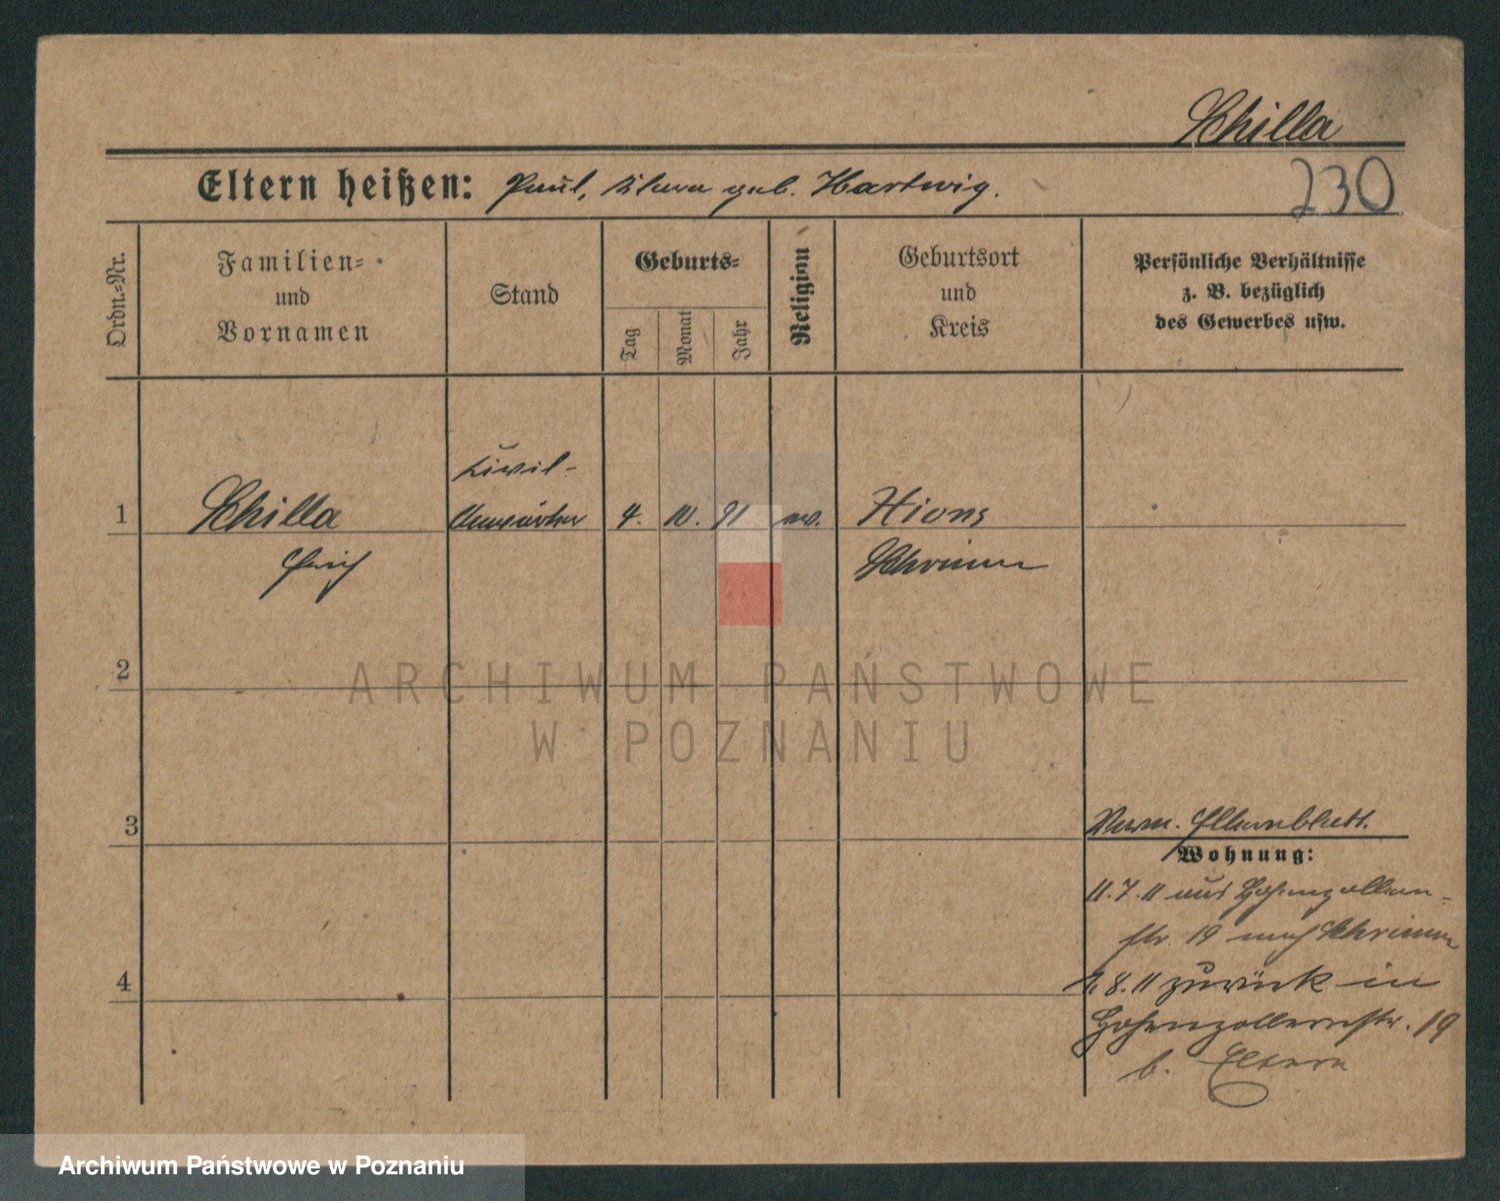 Schilla
Eltern heißen: Paul, geb. Hartwig.
230
Ordn.-Nr.
Familien-
und
Vornamen
Stand
Geburts-
Tag
Monat
Jahr
Religion
Geburtsort
und
Kreis
Persönliche Verhältnisse
z. B. bezüglich
des Gewerbes usw.
1
Schilla
Erich
Civil-
Anwärter
4. 10. 91
ev.
Hions
Schrimm
2
3
4
Verm. Elternblatt.
Wohnung:
11.7.11 aus Hohenzollern-
str. 19 nach Schrimm
8.11 zurück in
Hohenzollernstr. 19
b. Eltern
ARCHIWUM PAŃSTWOWE
W POZNANIU
Archiwum Państwowe w Poznaniu